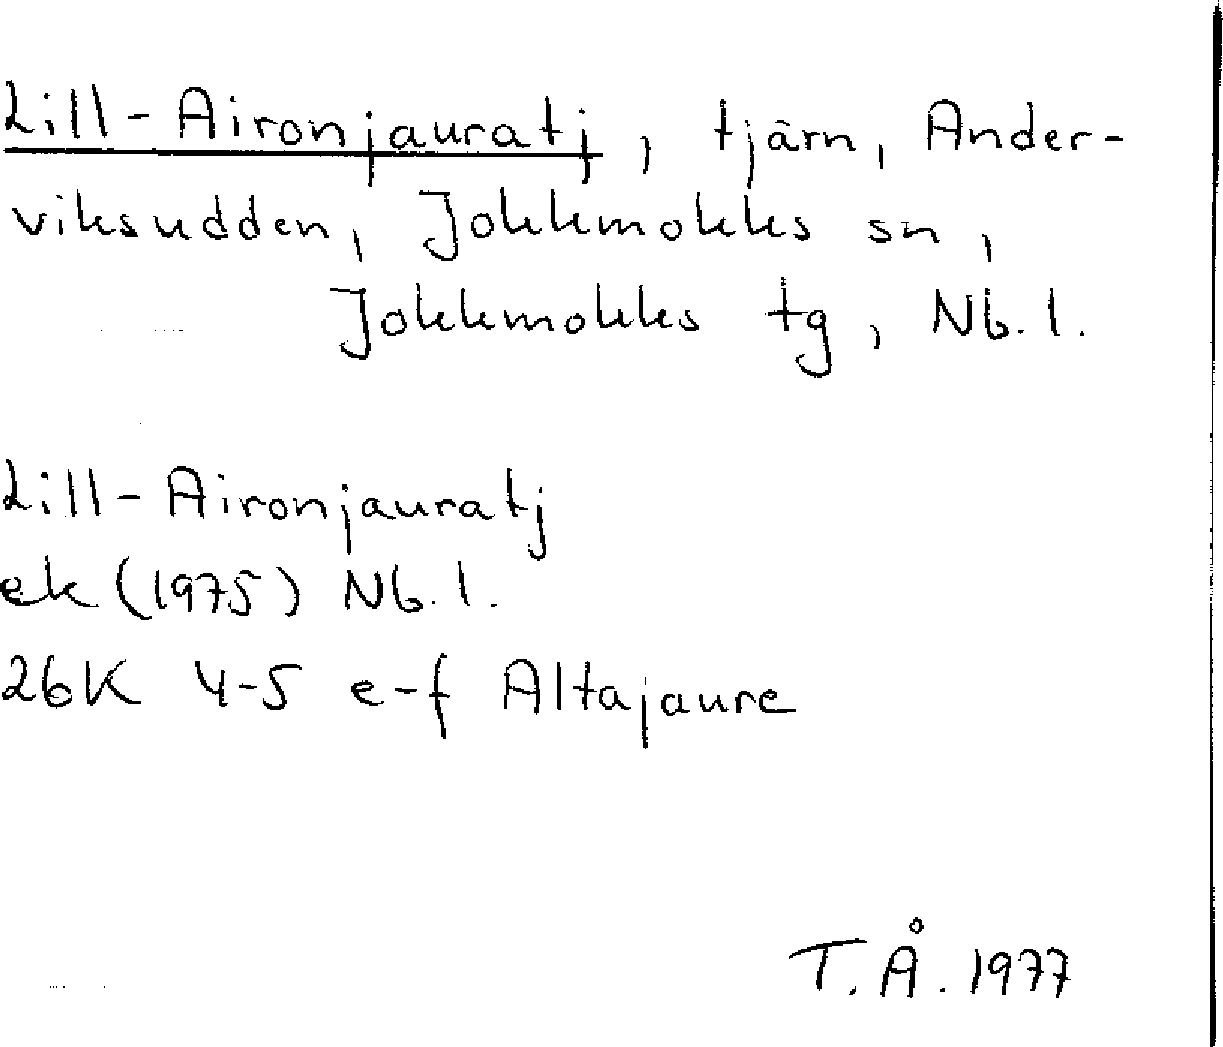 Lill-Aironjauratj, tjärn, Ander-
viksudden, Jokkmokks sn,
Jokkmokks tg, Nb. l.
Lill-Aironjauratj
ek (1975) Nb. l.
26K 4-5 e-f Altajaure
T.Å. 1977